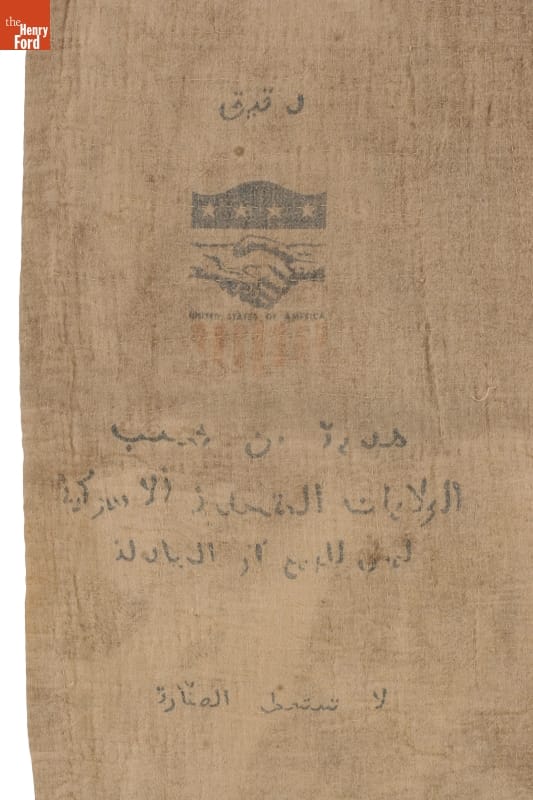 the Henry Ford
دقيق
UNITED STATES OF AMERICA
هدية من شعب
الولايات المتحدة الاميركية
ليس للبيع او المبادلة
لا تستعمل الصنارة